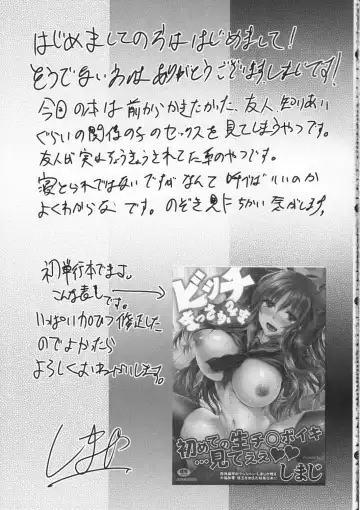 はじめましての方ははじめまして!
そうでない方はありがとうございますしまじです!
今回の本は前からかきたかった、友人、知りあい
ぐらいの関係の子のセックスを見てしまうやつです。
友人が実は
寝とられではないですがなんて呼べばいいのか
よくわからないです。のぞき見にちかい気がします
初単行本でます。
こんな表し→
です。
いっぱい加ひつ修正した
のでよかったら
よろしくおねがいします。
しまじ
ビッチ
初めての生チ○ポイキ
…見てぇぇ♥♥
しまじ